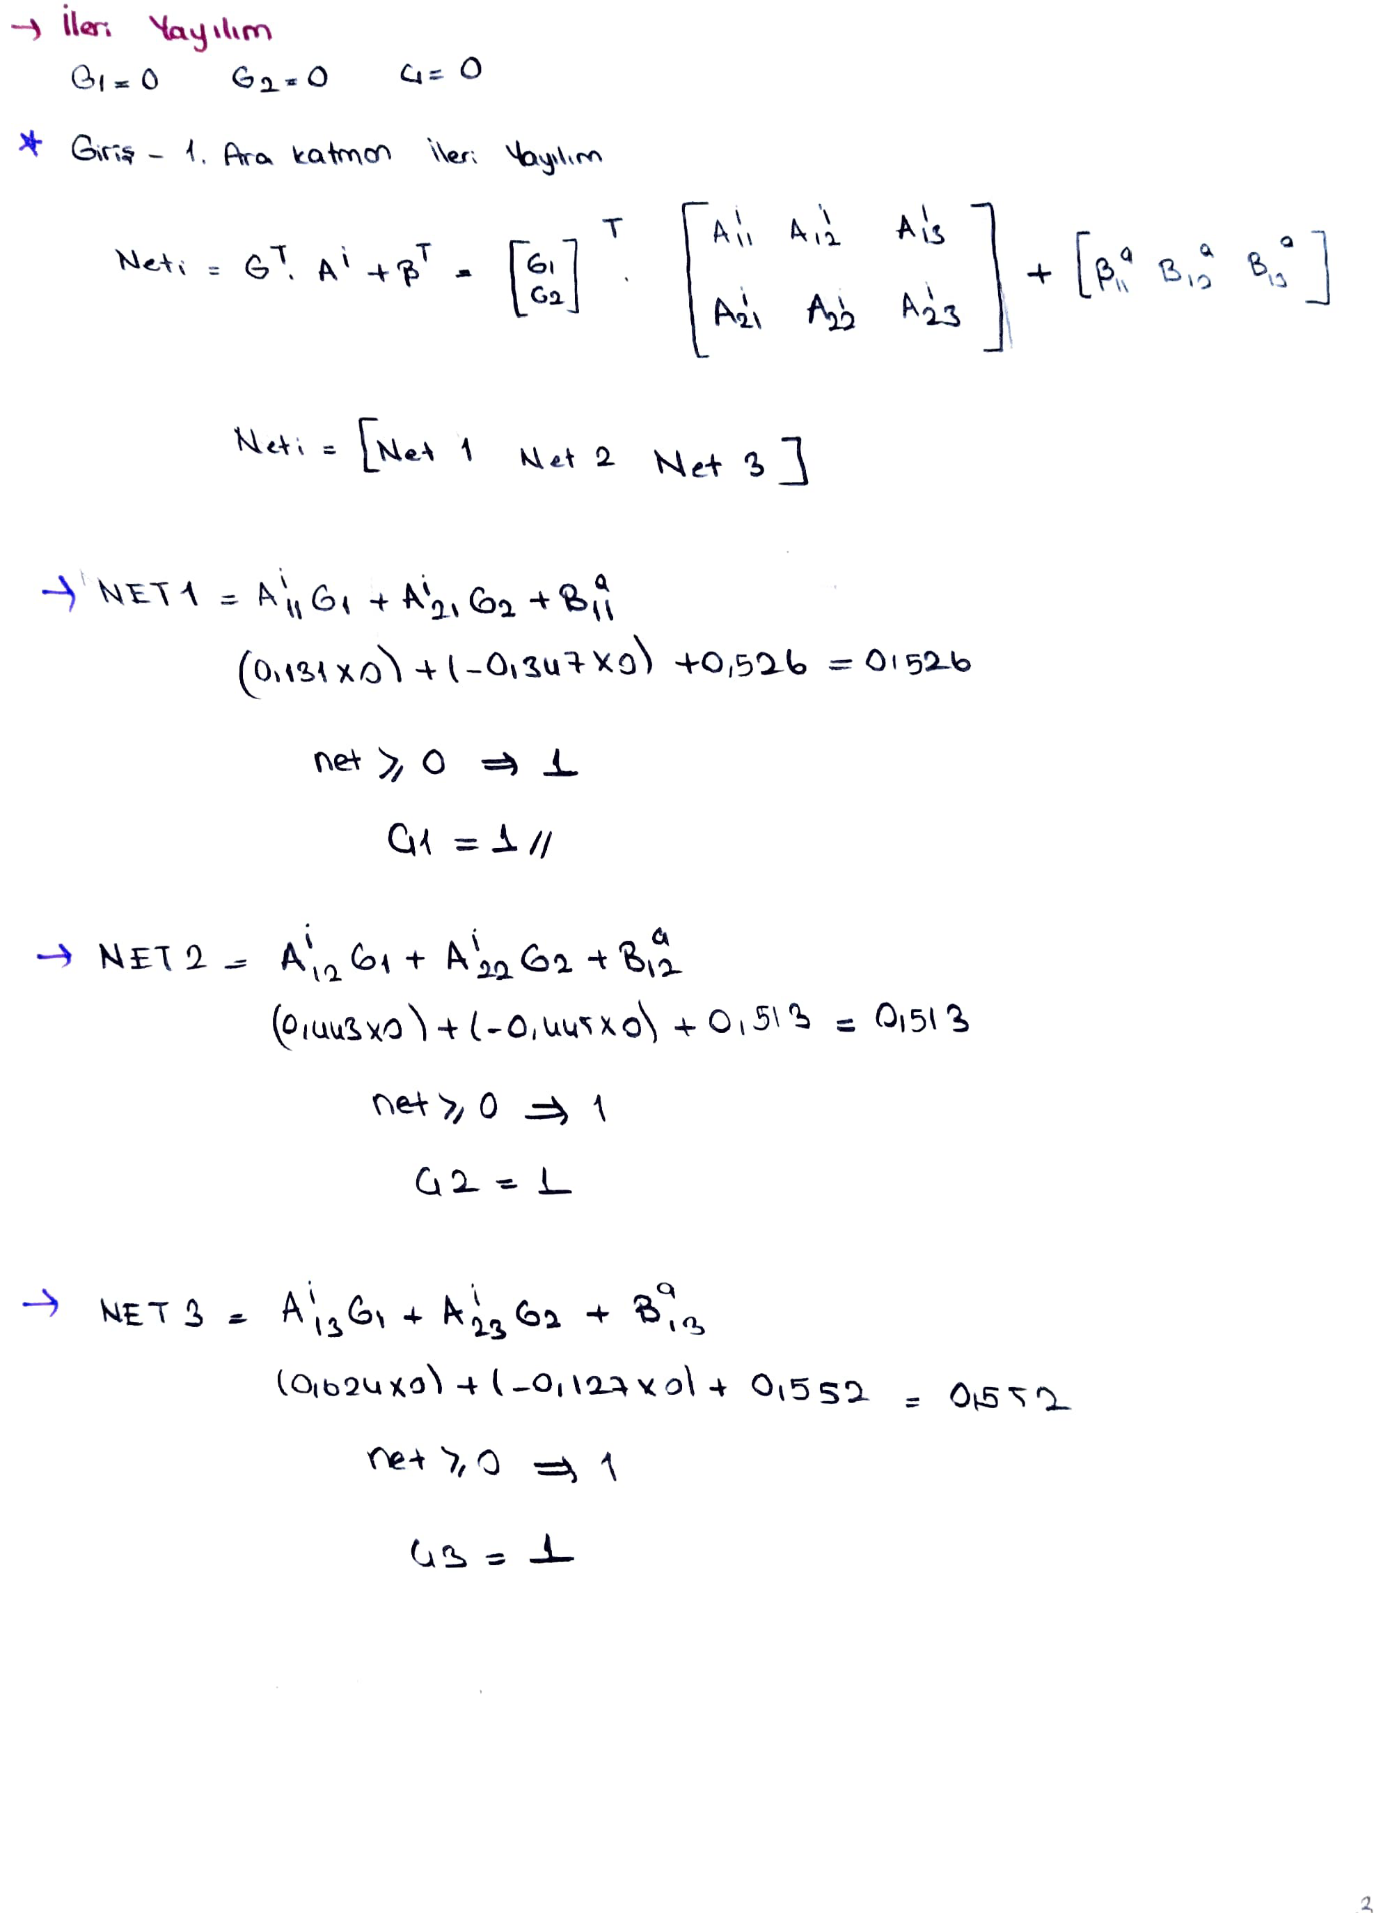 → İleri Yayılım
G1 = 0 G2 = 0 Ç1 = 0
* Giriş - 1. Ara katman İleri Yayılım
Neti = G^T. A^i + B^T = [G1 G2]^T . [A^i_11 A^i_12 A^i_13 A^i_21 A^i_22 A^i_23] + [B^a_11 B^a_12 B^a_13]
Neti = [Net 1 Net 2 Net 3]
→ NET 1 = A^i_11 G1 + A^i_21 G2 + B^a_11
(0,131x0) + (-0,347x0) + 0,526 = 0,526
net ≥ 0 ⇒ 1
Ç1 = 1 //
→ NET 2 = A^i_12 G1 + A^i_22 G2 + B^a_12
(0,443x0) + (-0,445x0) + 0,513 = 0,513
net ≥ 0 ⇒ 1
Ç2 = 1
→ NET 3 = A^i_13 G1 + A^i_23 G2 + B^a_13
(0,624x0) + (-0,127x0) + 0,552 = 0,552
net ≥ 0 ⇒ 1
Ç3 = 1
2